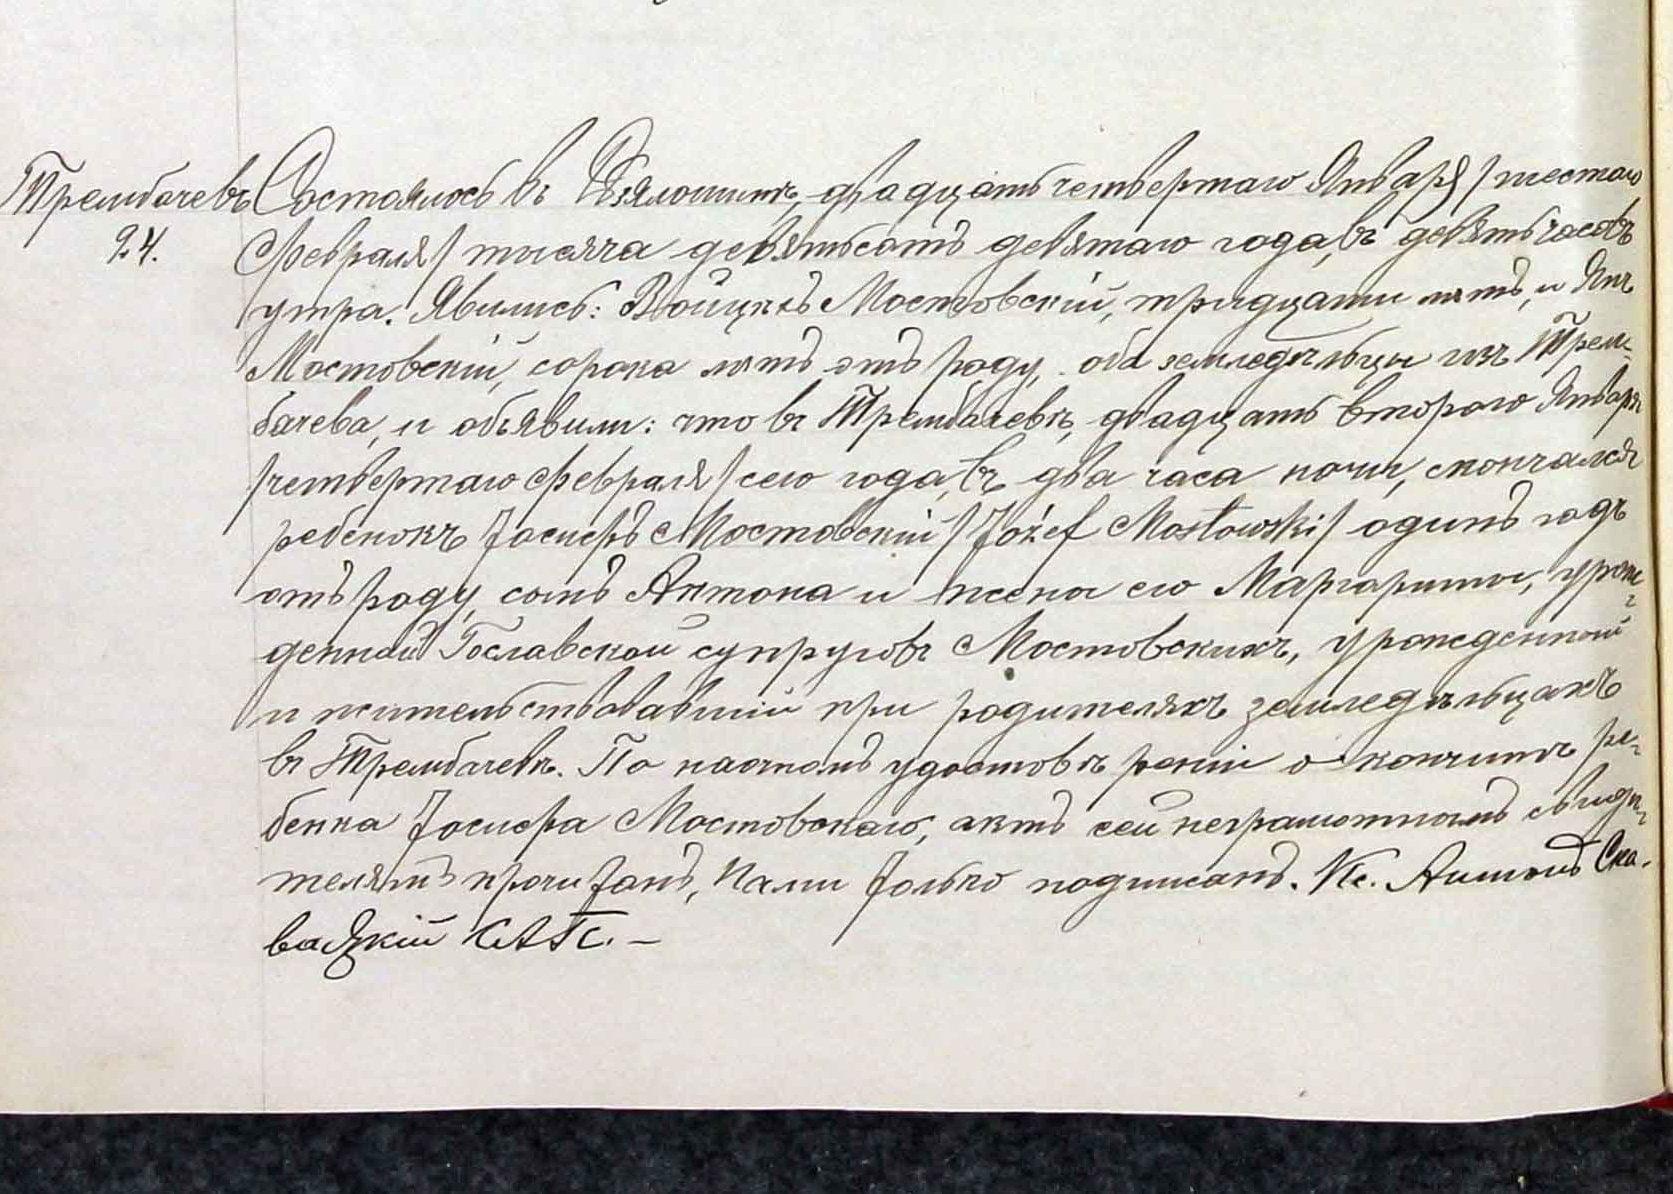 Трембачевъ Состоялось въ Дзялошинѣ, двадцать четвертаго Января /шестаго
24. Февраля/ тысяча девятьсотъ девятаго года, въ девять часовъ
утра. Явились: Войцехъ Мостовскій, тридцати лѣтъ, и Янъ
Мостовскій, сорока лѣтъ отъ роду, оба земледѣльцы изъ Трем-
бачева, и объявили: что въ Трембачевѣ, двадцать втораго Января
/четвертаго Февраля/ сего года, въ два часа ночи, скончался
ребенокъ Іосифъ Мостовскій /Józef Mostowski/ одинъ годъ
отъ роду, сынъ Антона и жены его Маргариты, урож-
денной Гославской супруговъ Мостовскихъ, урожденный
и жительствовавшій при родителяхъ земледѣльцахъ
въ Трембачевѣ. По настоящ удостовѣреніи о кончинѣ ре-
бенка Іосифа Мостовскаго, актъ сей неграмотнымъ свидѣ-
телямъ прочитанъ, Нами только подписанъ. Кс. Антонъ
С.А.Г.С. —